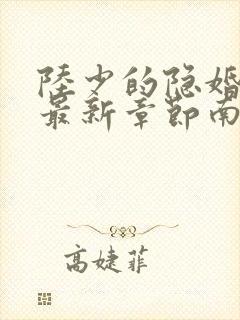 陸少的隐婚
最新章節南
高婕菲